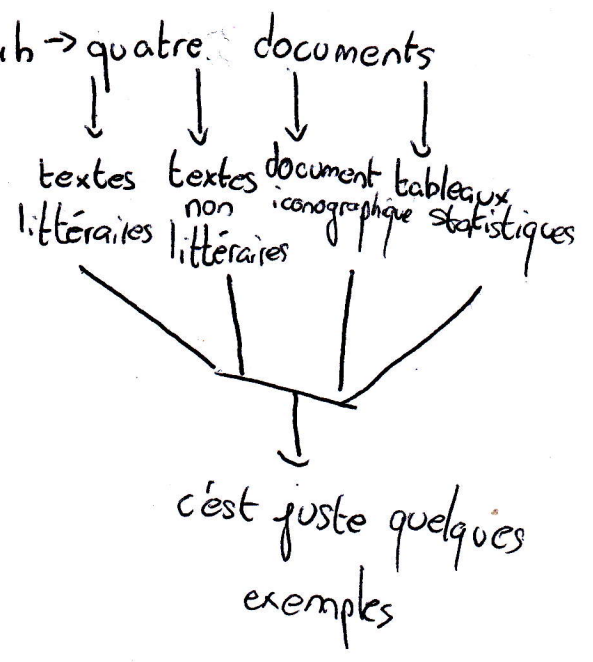 h → quatre documents
textes littéraires
textes non littéraires
document iconographique
tableaux statistiques
c'est juste quelques
exemples